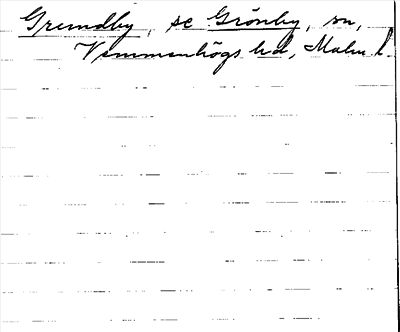 Grumdby, se Grönby, sn,
Vemmenhögs hd, Malm. l.